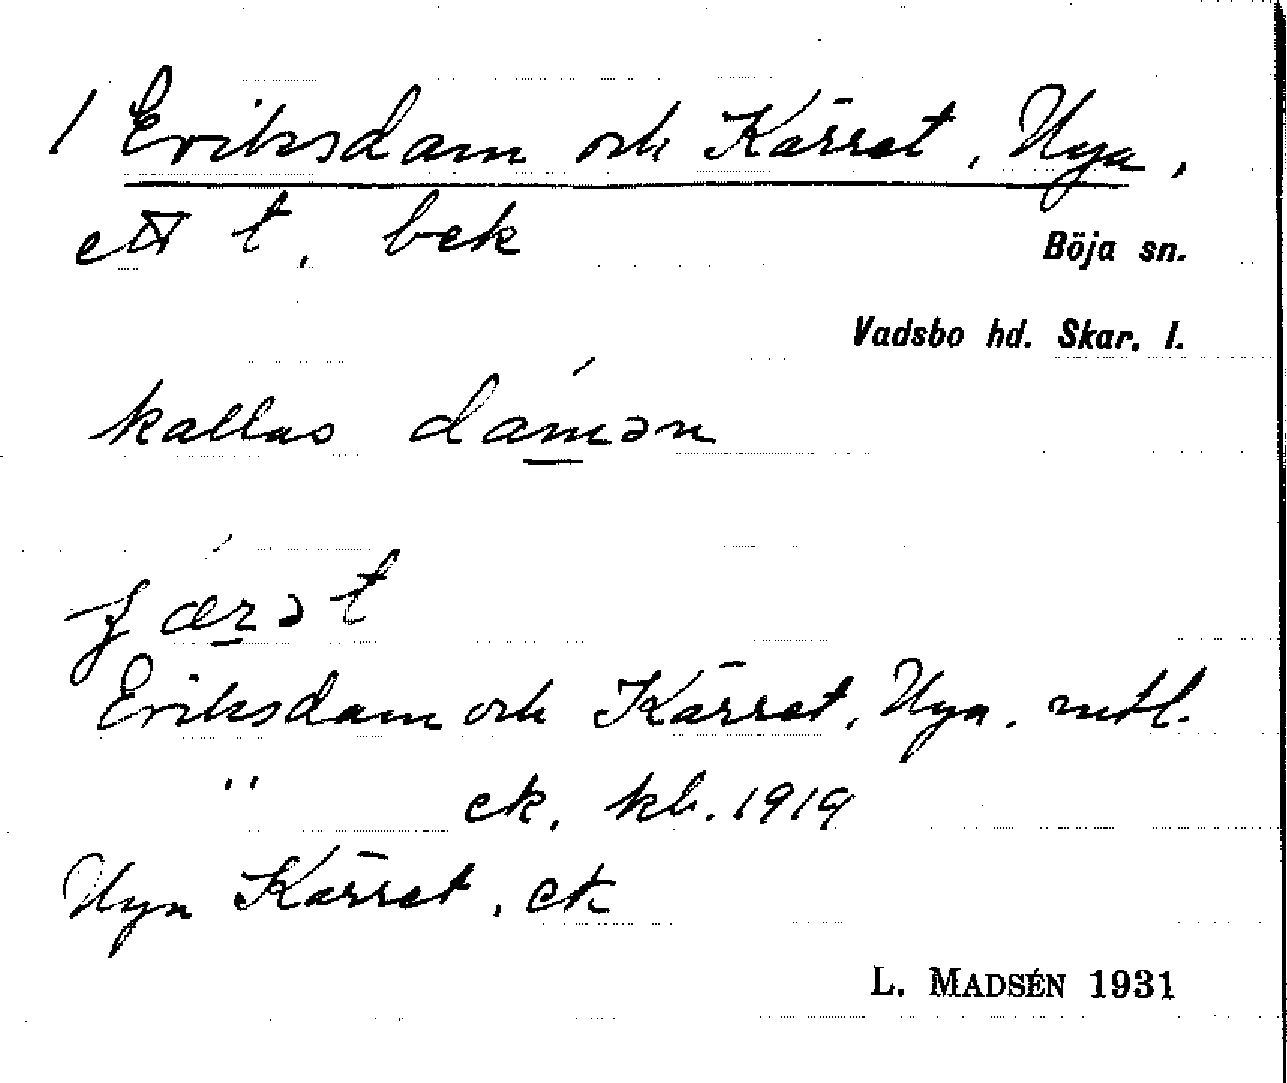 1 Eriksdam och Kärret, Nya,
ett t. bek
Böja sn.
Vadsbo hd. Skar. l.
kallas dámən
ʃǽrət
Eriksdam och Kärret, Nya. mtl.
" ek. kb. 1919
Nya Kärret. ek
L. MADSÉN 1931